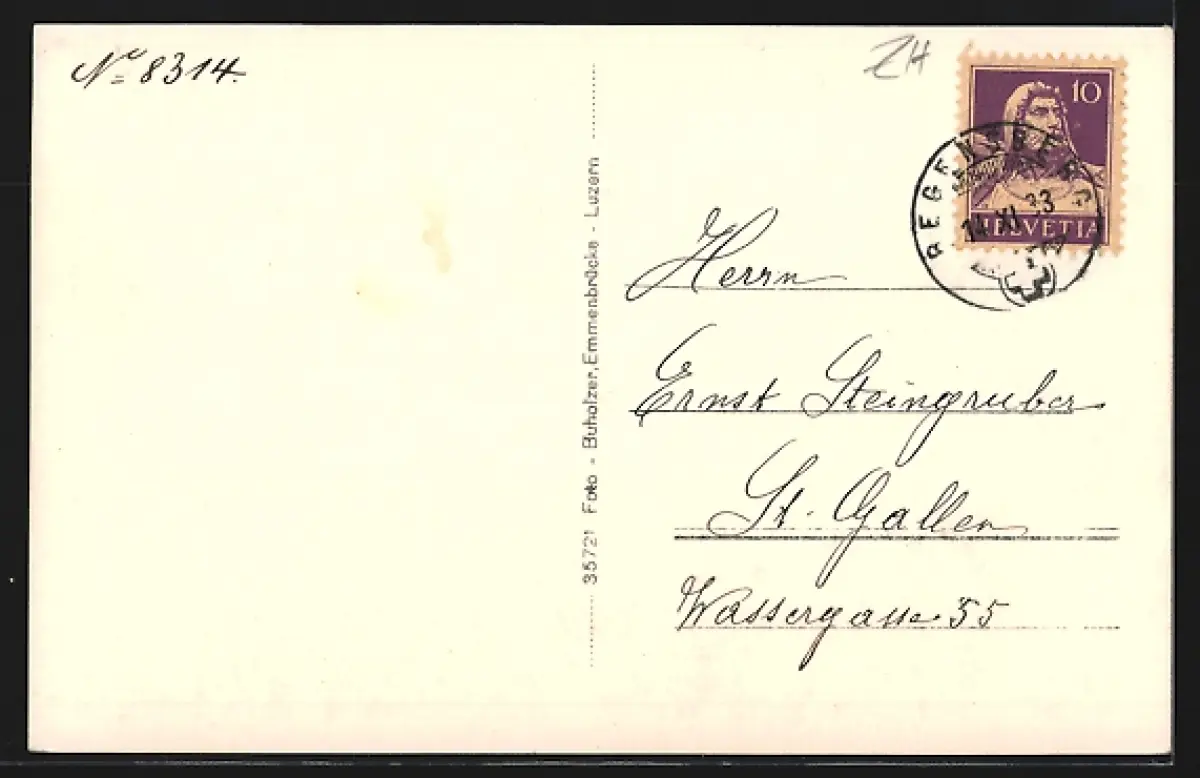 Nº 8314.
ZH
10
HELVETIA
REGENSBERG
14 XI 33
35721 Foto - Buholzer, Emmenbrücke - Luzern
Herrn
Ernst Steingruber
St. Gallen
Wassergasse 35